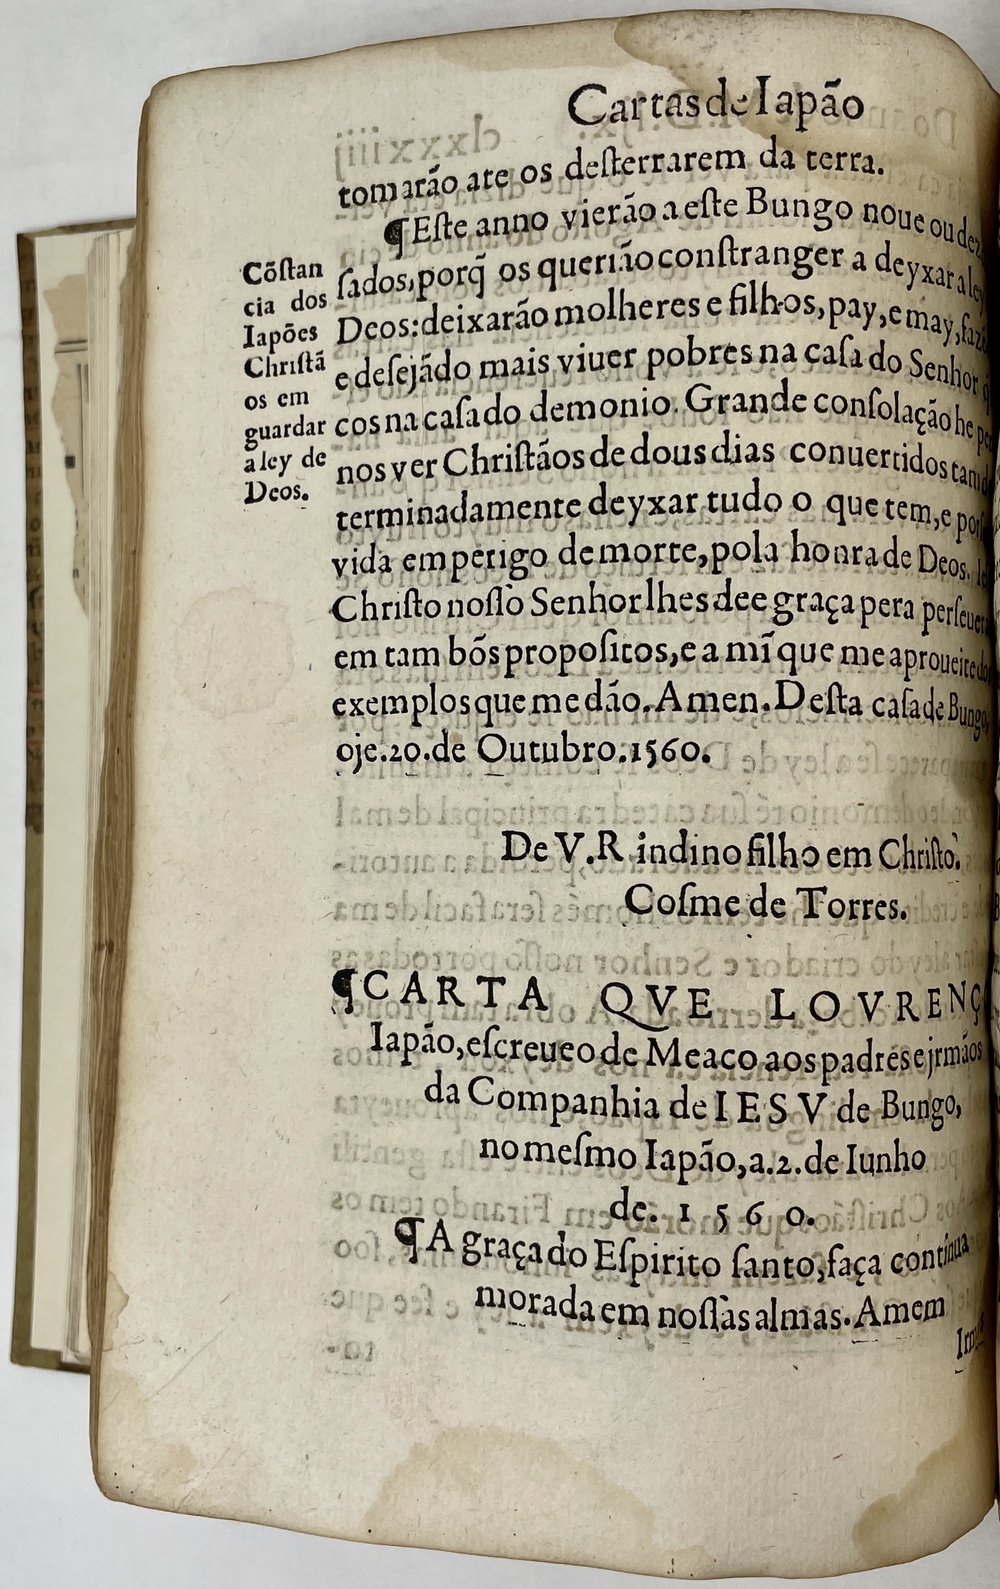 Cartas de Iapão
tomarão ate os deſterrarem da terra.
¶Eſte anno vierão a eſte Bungo noue ou dez
ſados, porq̃ os querião conſtranger a deyxar a ley
Deos: deixarão molheres e filhos, pay, e may, faz
e deſejãdo mais viuer pobres na caſa do Senhor q̃
cos na caſa do demonio. Grande conſolação he per
nos ver Chriſtãos de dous dias conuertidos tam d
terminadamente deyxar tudo o que tem, e por
vida em perigo de morte, pola honra de Deos. Ie
Chriſto noſſo Senhor lhes dee graça pera perſeuer
em tam bõs propoſitos, e a mĩ que me aproueite dos
exemplos que me dão. Amen. Deſta caſa de Bungo,
oje. 20. de Outubro. 1560.
Cõſtan
cia dos
Iapões
Chriſtã
os em
guardar
a ley de
Deos.
De V. R. indino filho em Chriſto.
Coſme de Torres.
¶CARTA QVE LOVRENÇ
Iapão, eſcreueo de Meaco aos padres e jrmãos
da Companhia de IESV de Bungo,
no meſmo Iapão, a. 2. de Iunho
de. 1560.
¶A graça do Eſpirito ſanto, faça continua
morada em noſſas almas. Amem